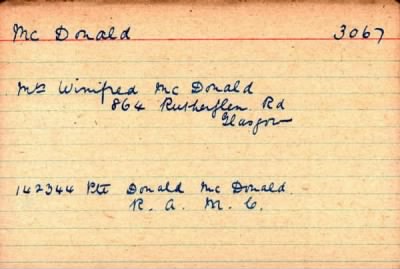 Mc Donald 3067
Mrs Winifred Mc Donald
864 Rutherglen Rd
Glasgow
142344 Pte Donald Mc Donald.
R. A. M. C.